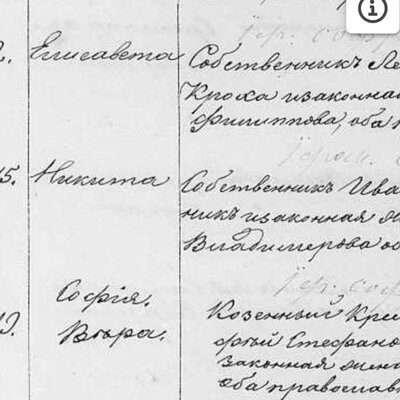 Елисавета Собственникъ Ле
Кроха и законная
Филиппова, оба
5. Никита Собственникъ Ива
никъ и законная же
Владимерова об
Софія. Козенный Кре
Вѣра. фтый Стефано
законная жена
оба православ